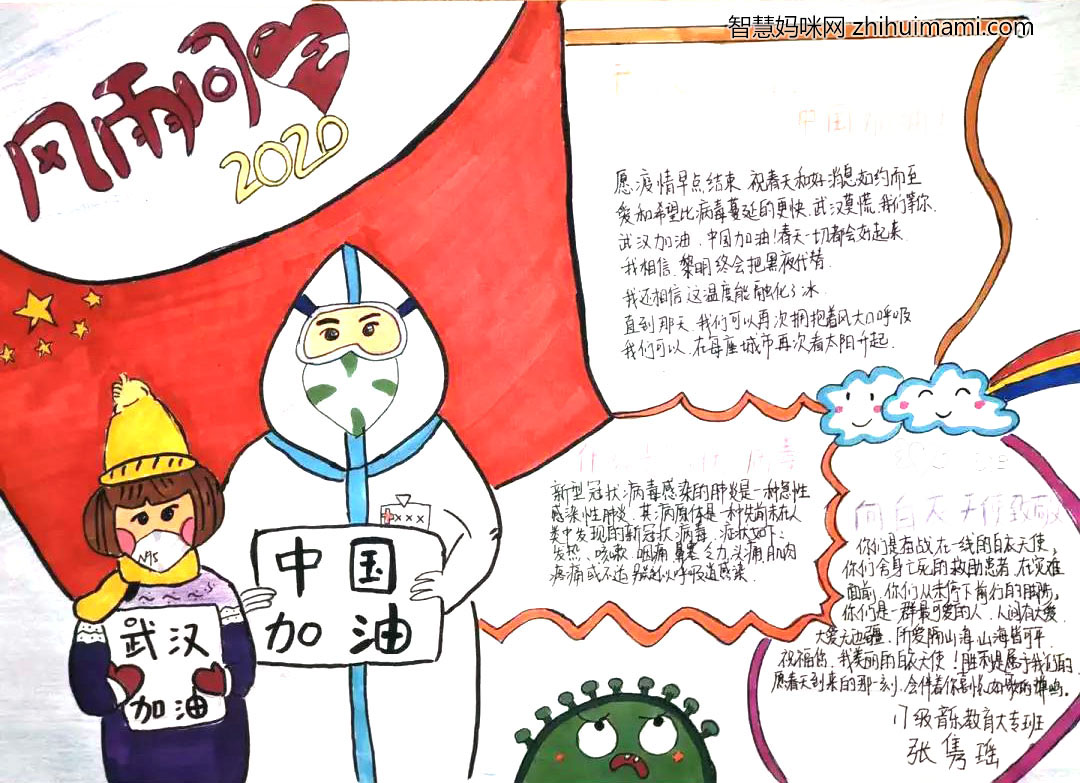 智慧妈咪网 zhihuimami.com
风雨同
2020
中国加油!
愿疫情早点结束 祝春天和好消息如约而至
爱和希望比病毒蔓延的更快.武汉莫慌.我们等你.
武汉加油.中国加油!春天一切都会好起来
我相信.黎明终会把黑夜代替.
我还相信这温度能融化了冰.
直到那天.我们可以再次拥抱着风大口呼吸
我们可以.在每座城市再次看太阳升起.
病毒
新型冠状病毒感染的肺炎是一种急性
感染性肺炎.其病原体是一种先前未在人
类中发现的新冠状病毒.症状如下:
发热.咳嗽.咽痛.鼻塞.乏力.头痛.肌肉
疼痛或不适 呼吸道感染.
向白衣天使致敬
你们是奋战在一线的白衣天使,
你们舍身忘死的救助患者.在灾难
面前.你们从未停下前行的脚步,
你们是一群最可爱的人.人间有大爱.
大爱无边疆.所爱隔山海.山海皆可平.
祝福你.我美丽的白衣天使!胜利是属于我们的
愿春天到来的那一刻.会伴着你
17级音乐教育大专班
张隽瑶
×××
N95
中国
加油
武汉
加油